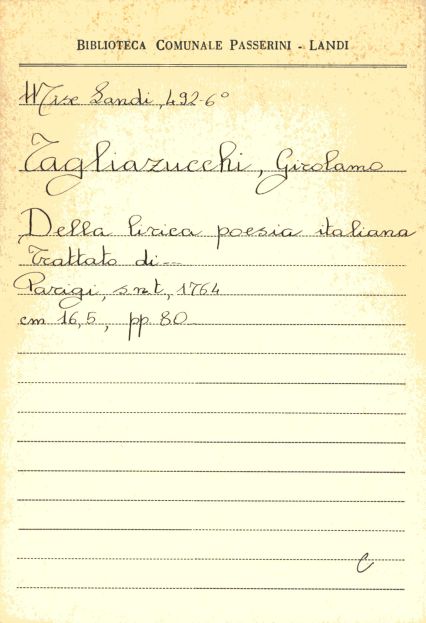 BIBLIOTECA COMUNALE PASSERINI - LANDI
Misc Landi, 492-6°
Tagliazucchi, Girolamo
Della lirica poesia italiana
Trattato di --
Parigi, s.n.t., 1764
cm 16,5, pp 80
C